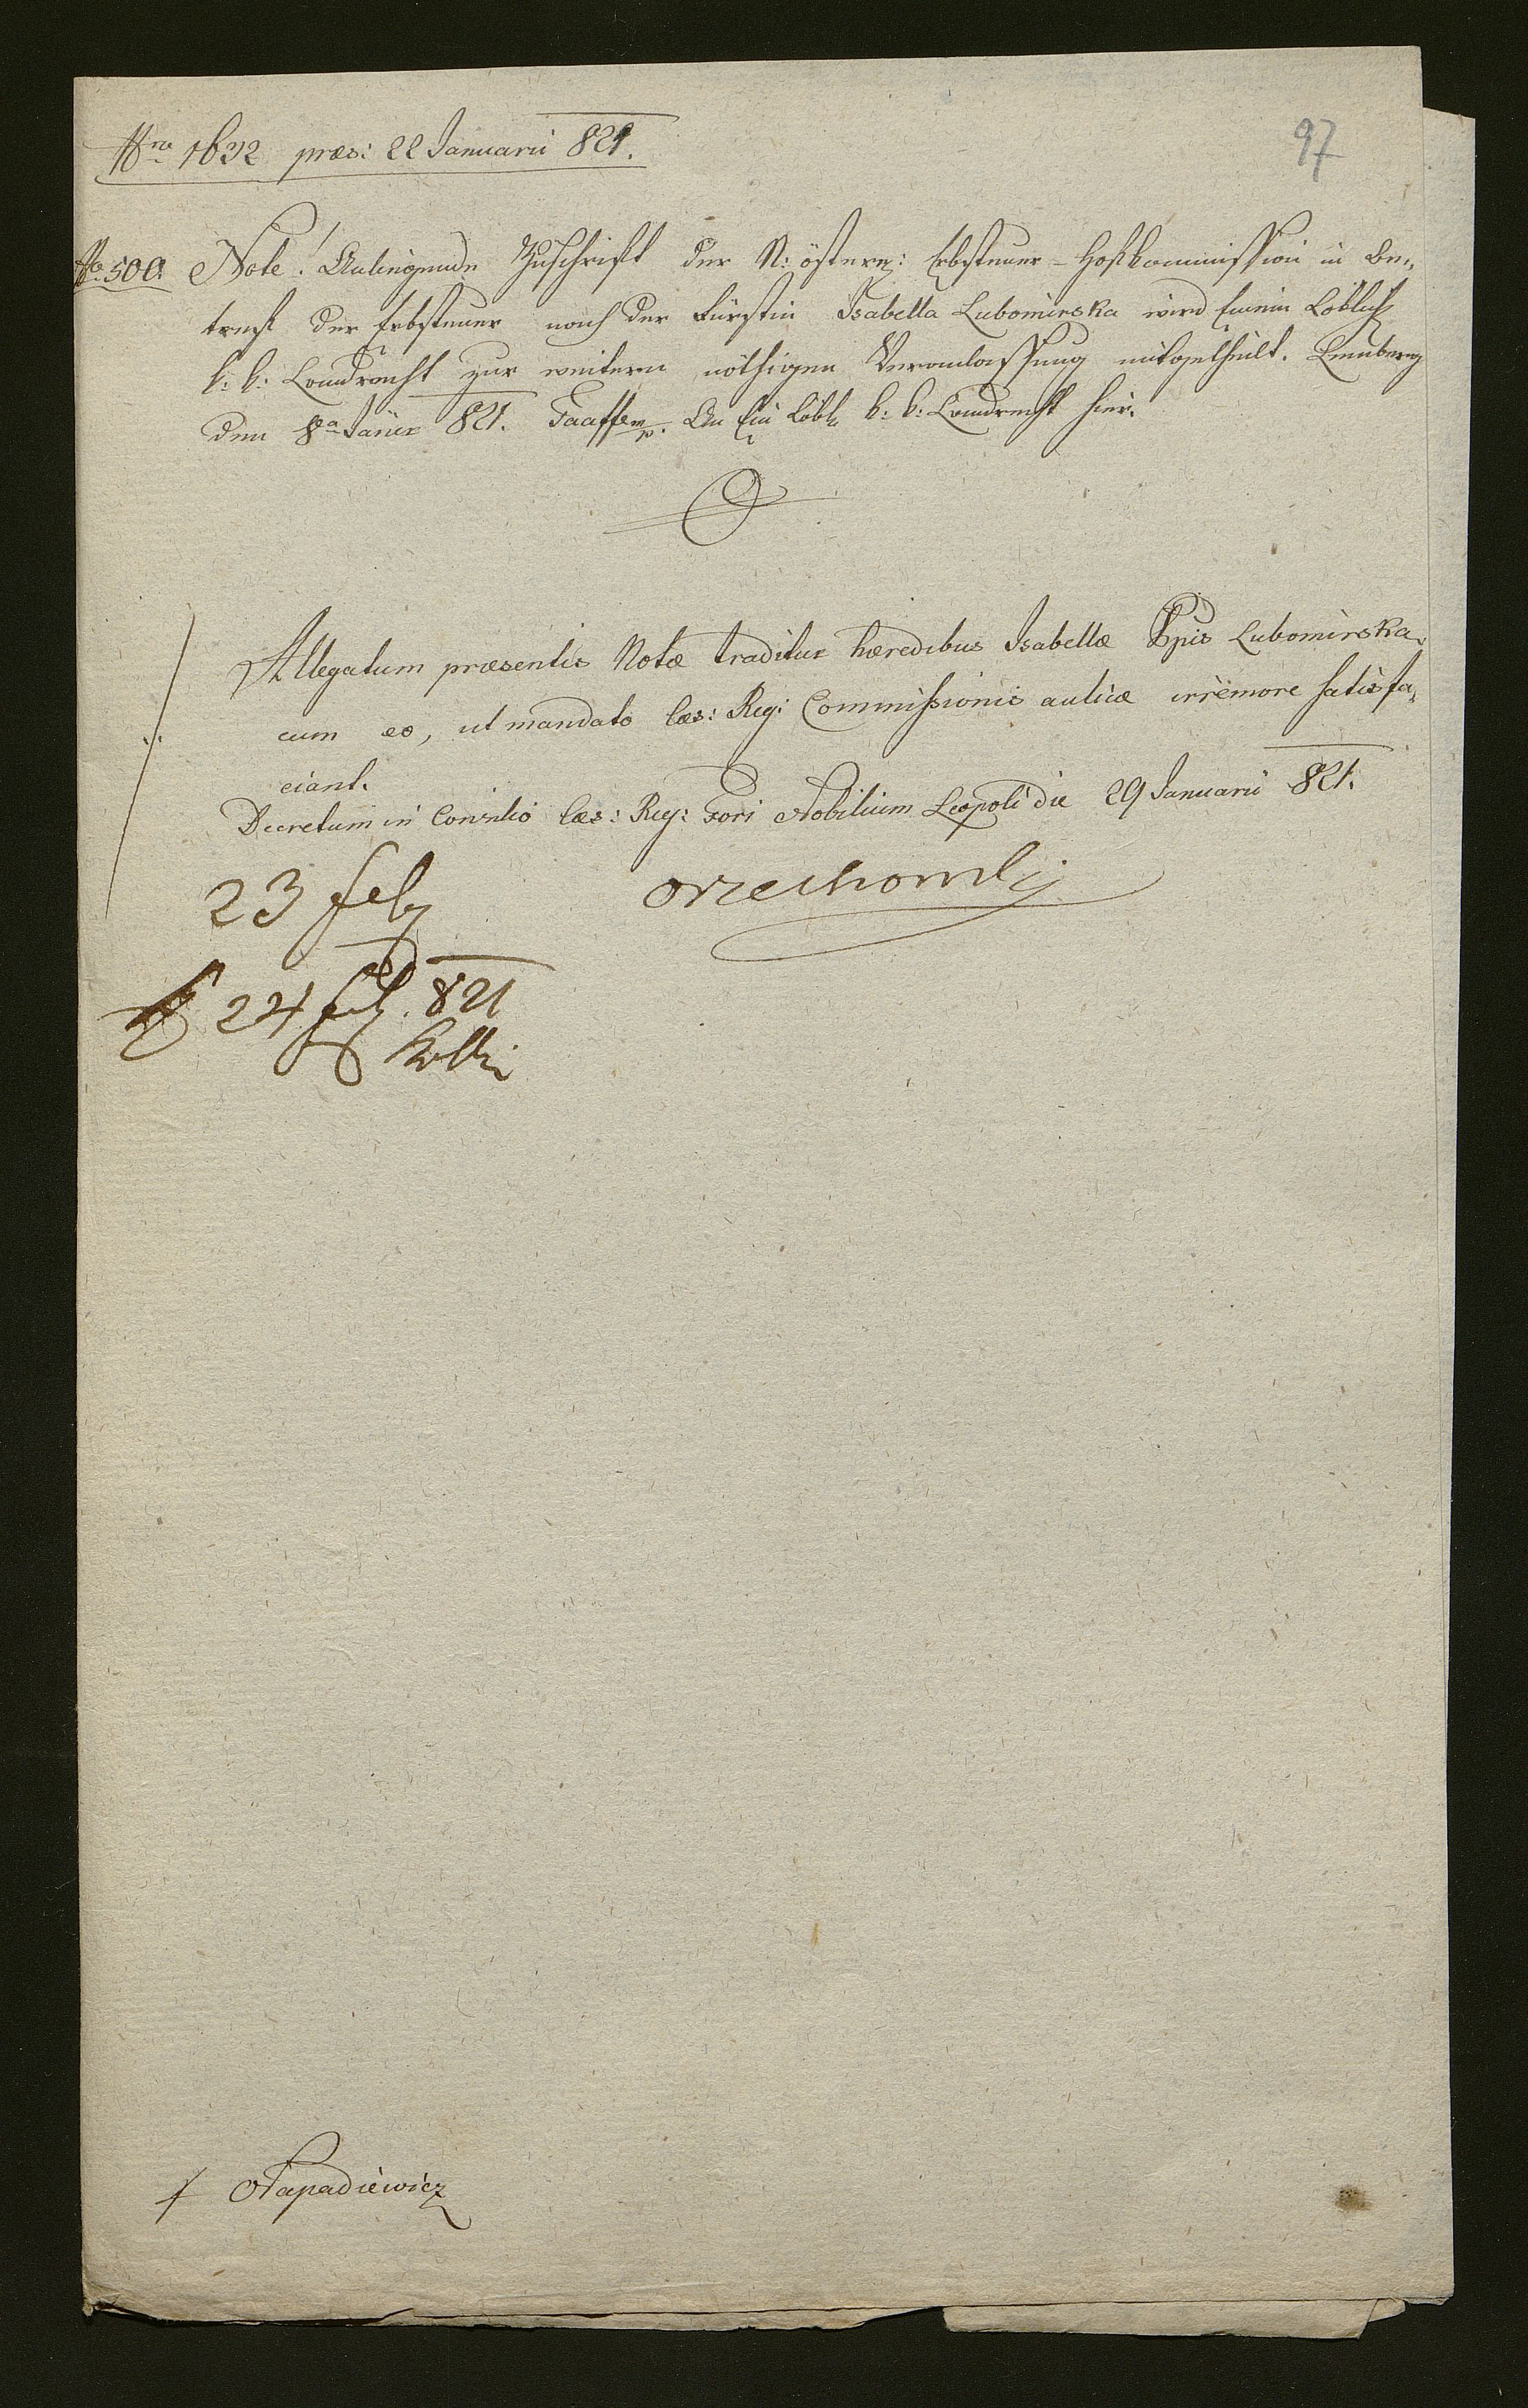 Nro 1632 præs: 22 Januarii 821.
97
No 500. Note! Anliegende Zuschrift der N: österr: Erbsteuer-Hofkommission in Be-
treff der Erbsteuer nach der Fürstin Isabella Lubomirska wird Einem Löblich
k: k: Landrecht zur weitern nöthigen Veranlassung mitgetheilt. Lemberg
den 8n Jäner 821. Taaffe mp. An Ein löbl. k: k: Landrecht hier.
Allegatum præsentis Notæ traditur hæredibus Isabellæ Ppis Lubomirska
cum eo, ut mandato Cæs: Reg: Commissionis aulicæ irremore satisfa-
ciant.
Decretum in Consilio Cæs: Reg: Fori Nobilium Leopoli die 29 Januarii 821.
23 feb
Orzechowski
24 feb. 821
Napadiewicz